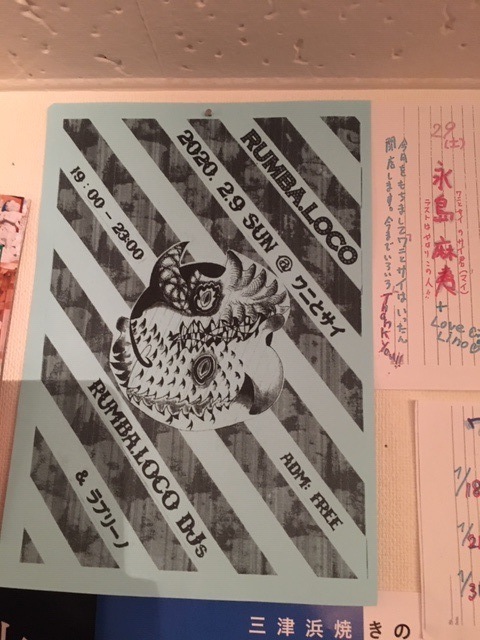 RUMBA.LOCO
2020. 2.9 SUN @ ワニとサイ
19:00 – 23:00
RUMBA.LOCO DJs
& ラブリーノ
ADM: FREE
29
(土)
永島 麻寿
ラストはやはりこの人!!
+
Love
Lino
今月をもちまして「ワニとサイ」はいったん
閉店します。今までいろいろ
Thank You!!!
1/18
三津浜焼きの